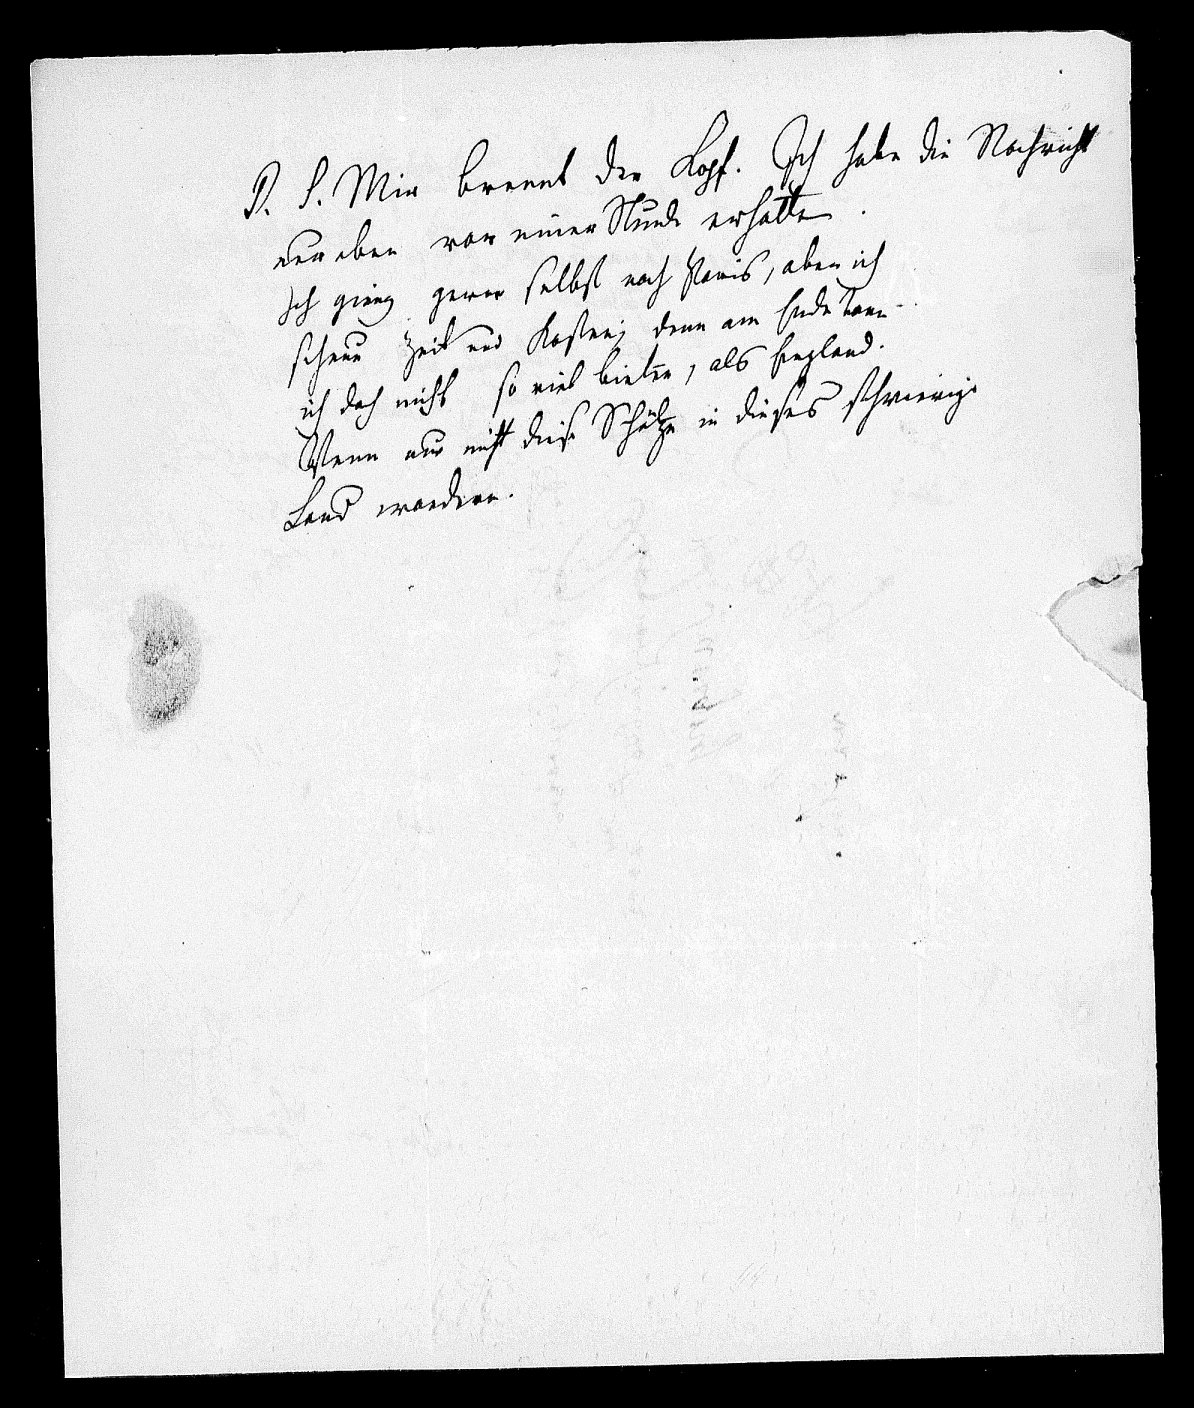 P. S. Mir brennt der Kopf. Ich habe die Nachricht
nur eben vor einer Stunde erhalten.
Ich gieng gerne selbst nach Paris, aber ich
scheue Zeit und Kosten; denn am Ende kann
ich doch nicht so viel bieten, als England.
Wenn nur nicht diese Schätze in dieses schwierige
Land wandern.